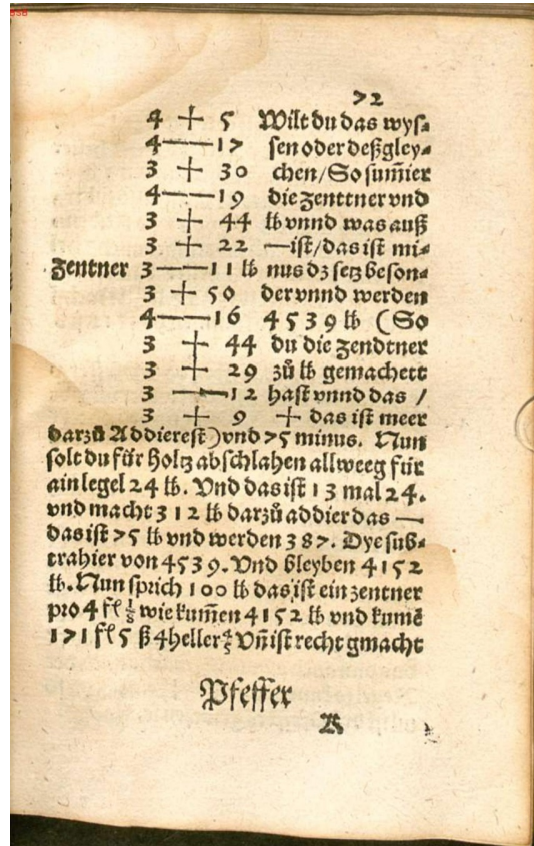 72
4 + 5 Wilt du das wys⸗
4 — 17 sen oder deßgley⸗
3 + 30 chen/So sum̄ier
4 — 19 die zenttner vnd
3 + 44 lb vnnd was auß
3 + 22 —ist/das ist mi⸗
Zentner 3 — 11 lb nus dz setz beson⸗
3 + 50 der vnnd werden
4 — 16 4539 lb (So
3 + 44 du die zendtner
3 + 29 zů lb gemachett
3 — 12 hast vnnd das /
3 + 9 + das ist meer
darzů Addierest) vnd 75 minus. Nun
solt du für holtz abschlahen allweeg für
ain legel 24 lb. Vnd das ist 13 mal 24.
vnd macht 312 lb darzů addier das —
das ist 75 lb vnd werden 387. Dye sub⸗
trahier von 4539. Vnd bleyben 4152
lb. Nun sprich 100 lb das ist ein zentner
pro 4 fl ⅛ wie kum̄en 4152 lb vnd kumē
171 fl 5 ß 4 heller ⅘ Vn̄ ist recht gmacht
Pfeffer